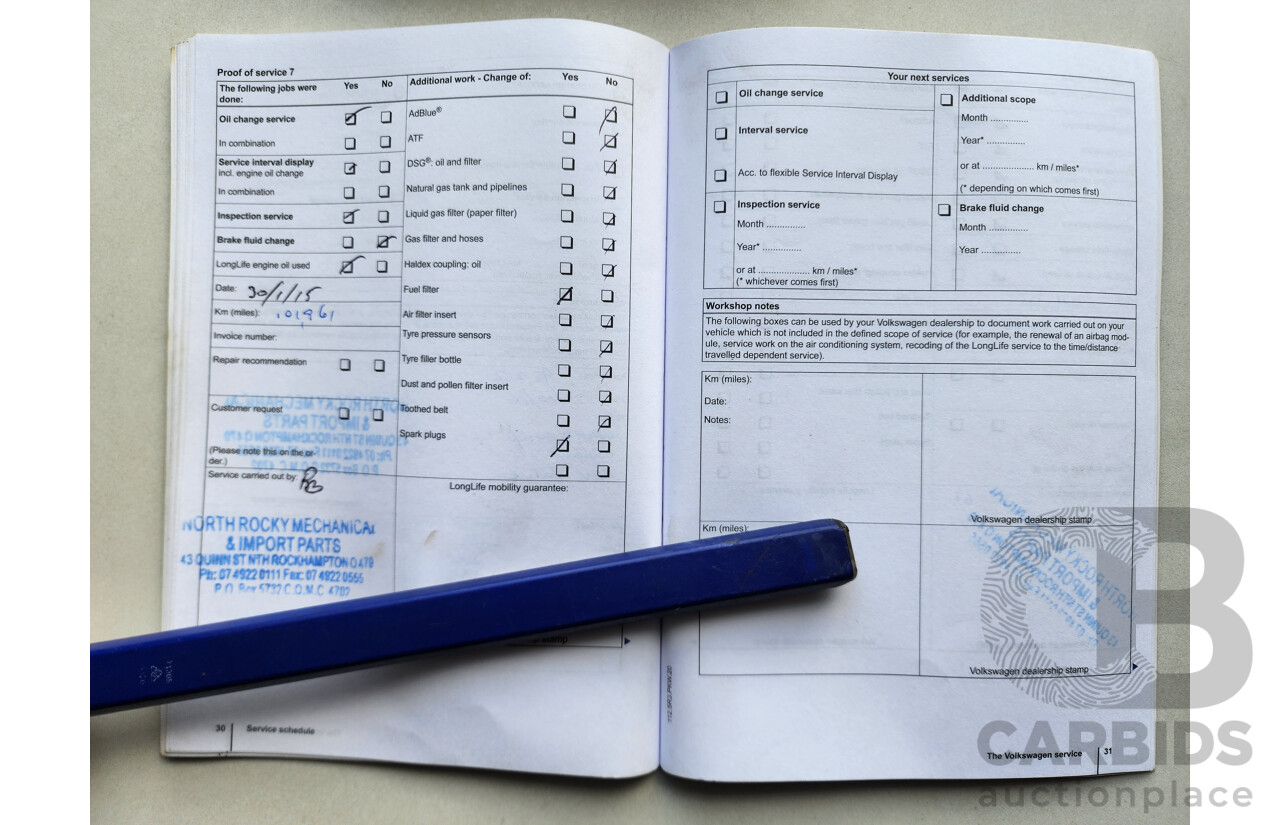 Proof of service 7
The following jobs were done:
Yes
No
Additional work - Change of:
Yes
No
Oil change service
In combination
Service interval display
incl. engine oil change
In combination
Inspection service
Brake fluid change
LongLife engine oil used
Date: 30/1/15
Km (miles): 101961
Invoice number:
Repair recommendation
Customer request
(Please note this on the or-
der.)
Service carried out by:
NORTH ROCKY MECHANICAL
& IMPORT PARTS
43 QUINN ST NTH ROCKHAMPTON Q 470
Ph: 07 4922 0111 Fax: 07 4922 0555
P.O. Box 5732 C.Q.M.C 4702
AdBlue®
ATF
DSG®: oil and filter
Natural gas tank and pipelines
Liquid gas filter (paper filter)
Gas filter and hoses
Haldex coupling: oil
Fuel filter
Air filter insert
Tyre pressure sensors
Tyre filler bottle
Dust and pollen filter insert
Toothed belt
Spark plugs
LongLife mobility guarantee:
stamp
30
Service schedule
Your next services
Oil change service
Interval service
Acc. to flexible Service Interval Display
Inspection service
Month ..............
Year* ..............
or at .................... km / miles*
(* whichever comes first)
Additional scope
Month ..............
Year* ..............
or at .................... km / miles*
(* depending on which comes first)
Brake fluid change
Month ..............
Year ..............
Workshop notes
The following boxes can be used by your Volkswagen dealership to document work carried out on your
vehicle which is not included in the defined scope of service (for example, the renewal of an airbag mod-
ule, service work on the air conditioning system, recoding of the LongLife service to the time/distance
travelled dependent service).
Km (miles):
Date:
Notes:
Volkswagen dealership stamp
Km (miles):
Volkswagen dealership stamp
The Volkswagen service
31
CARBIDS
auctionplace